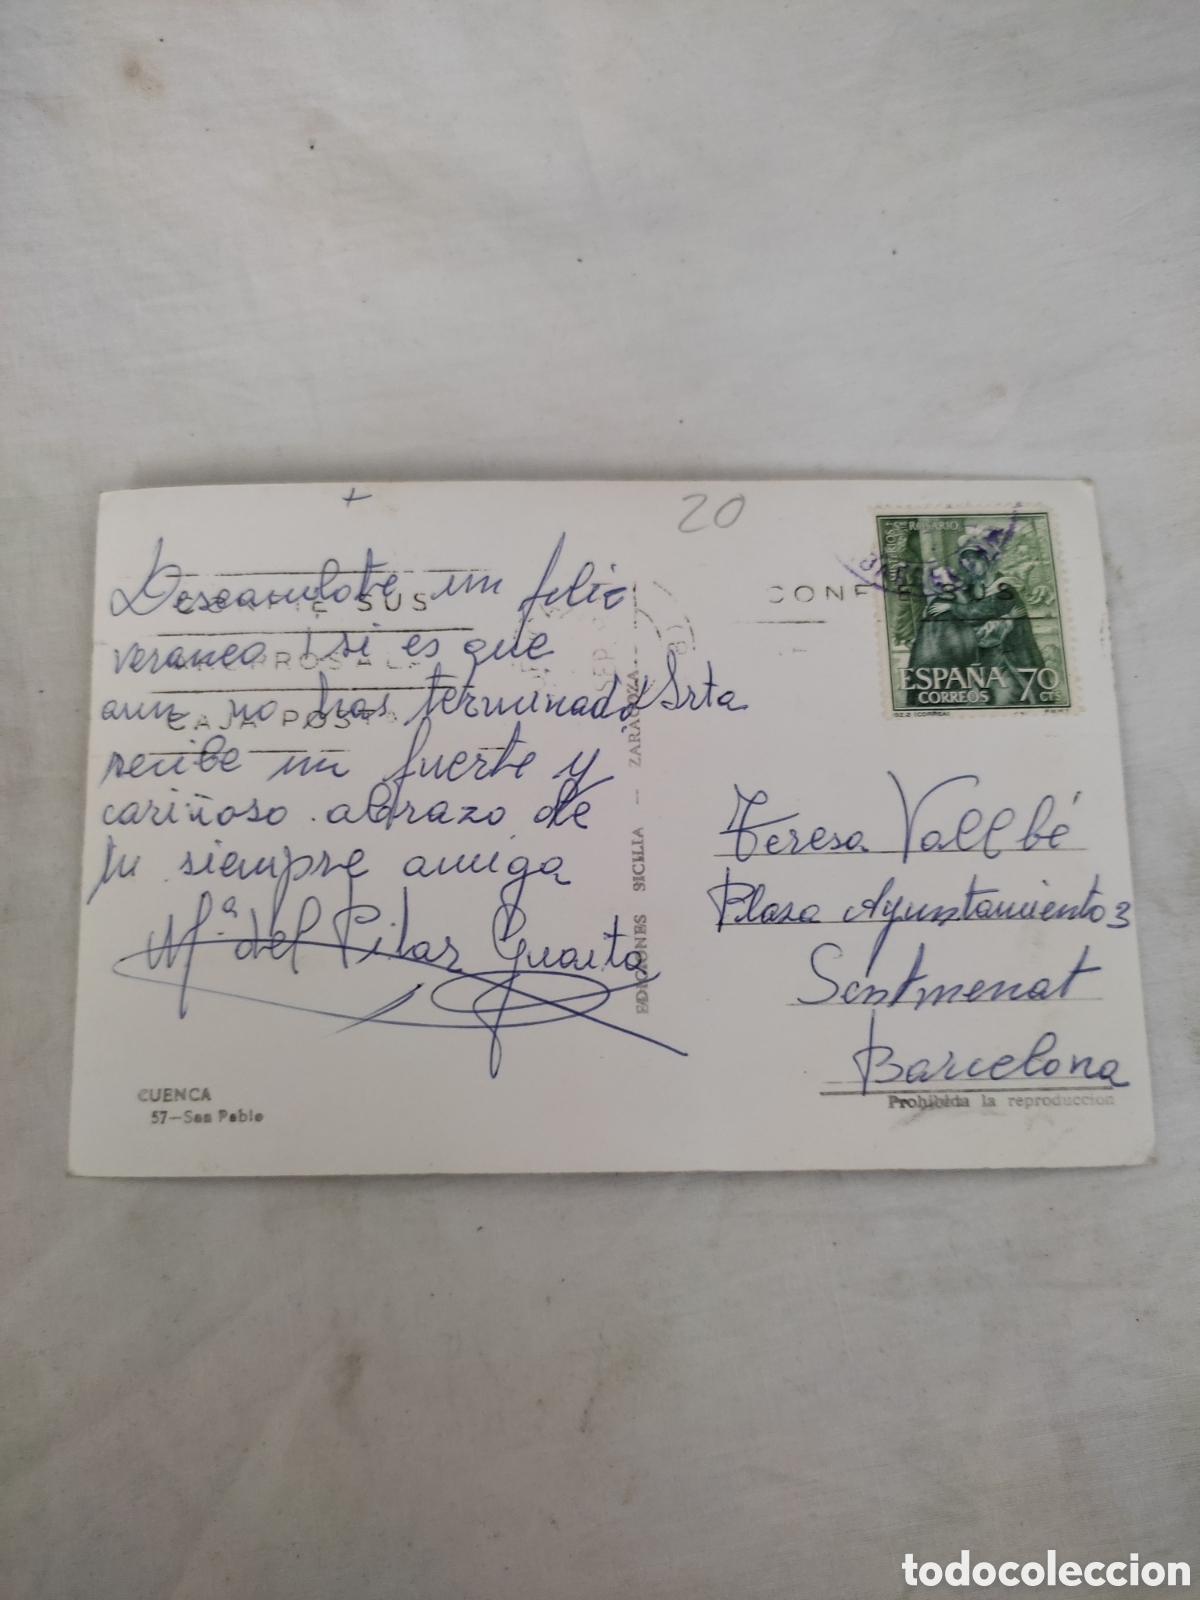 +
20
Deseandote un feliz
veraneo (si es que
aun no has terminado)
recibe un fuerte y
cariñoso abrazo de
tu siempre amiga
Mª del Pilar Guaita
CONFIE SUS
AHORROS A LA
CAJA POSTAL
SEP.
CUENCA
57-San Pablo
EDICIONES SICILIA - ZARAGOZA
CONFIE SUS
BARCELONA
Sto ROSARIO
ESPAÑA 70
CORREOS CTS
Srta
Teresa Vallbé
Plaza Ayuntamiento 3
Sentmenat
Barcelona
Prohibida la reproduccion
todocoleccion